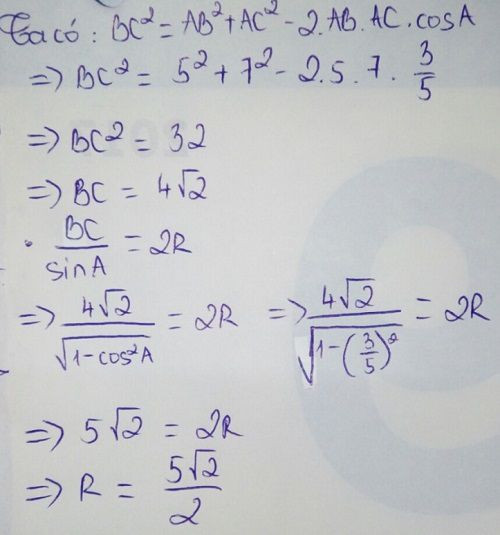 Ta có : BC² = AB² + AC² - 2.AB.AC.cosA
=> BC² = 5² + 7² - 2.5.7. 3/5
=> BC² = 32
=> BC = 4√2
• BC/sinA = 2R
=> 4√2/√(1-cos²A) = 2R => 4√2/√(1-(3/5)²) = 2R
=> 5√2 = 2R
=> R = 5√2/2